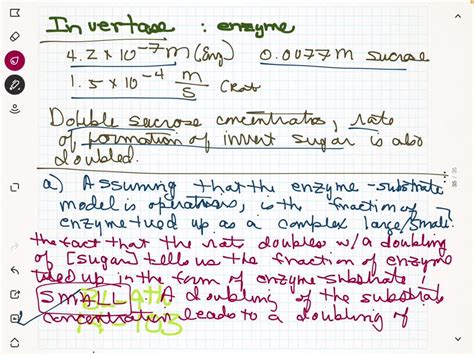 Invertase : enzyme
4.2 x 10^-7 m (Eng) 0.0077 m sucrose
1.5 x 10^-4 m/s (Rate)
Double sucrose concentration, rate
of formation of invert sugar is also
doubled.
a) Assuming that the enzyme-substrate
model is operational, is the fraction of
enzyme tied up as a complex large/small.
the fact that the rate doubles w/a doubling
of [sugar] tells us the fraction of enzyme
tied up in the form of enzyme-substrate,
SMALL. A doubling of the substrate
concentration leads to a doubling of